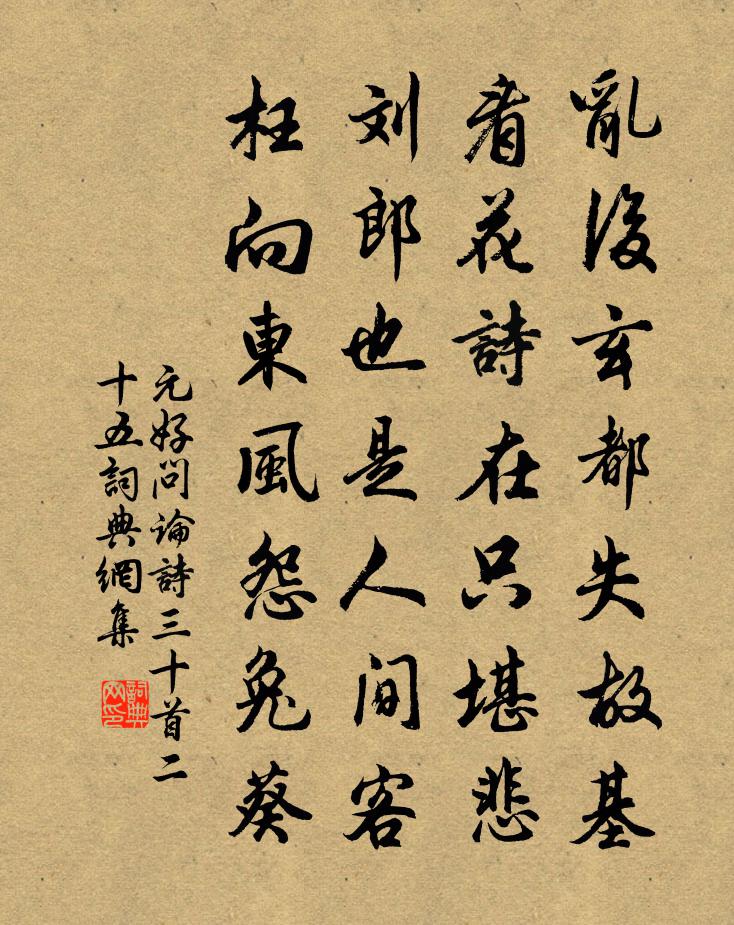 亂後玄都失故基
看花詩在只堪悲
刘郎也是人間客
枉向東風怨兔葵
元好问論詩三十首二
十五詞典網集
詞典
网印